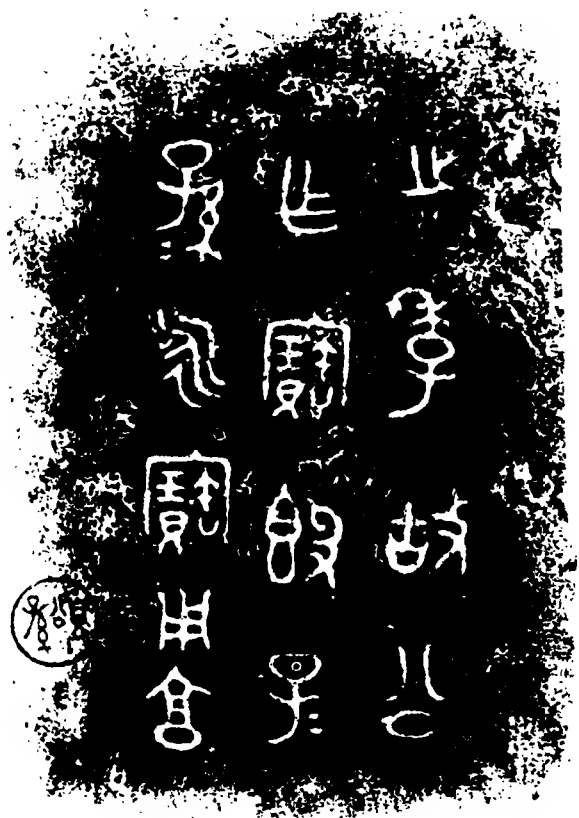 止季故公
乍寶𣪘子=
孫=永寶用享